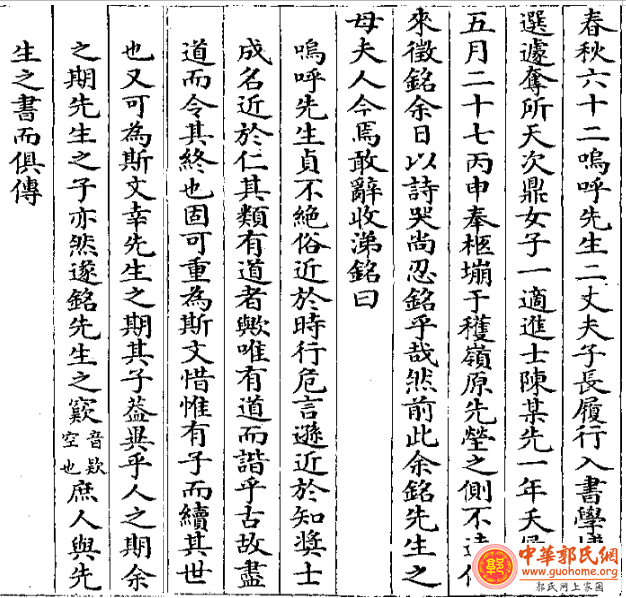 春秋六十二嗚呼先生二丈夫子長履行入書學
選遽奪所天次鼎女子一適進士陳某先一年夭
五月二十七丙申奉柩堋于穫嶺原先塋之側不遠
來徵銘余日以詩哭尚忍銘乎哉然前此余銘先生之
母夫人今焉敢辭收涕銘曰
嗚呼先生貞不絕俗近於時行危言遜近於知奬士
成名近於仁其類有道者歟唯有道而諧乎古故盡
道而令其終也固可重為斯文惜惟有子而續其世
也又可為斯文幸先生之期其子葢異乎人之期余
之期先生之子亦然遂銘先生之窾音欵空也庶人與先
生之書而俱傳
中華郭氏網
www.guohome.org
郭氏网上家園